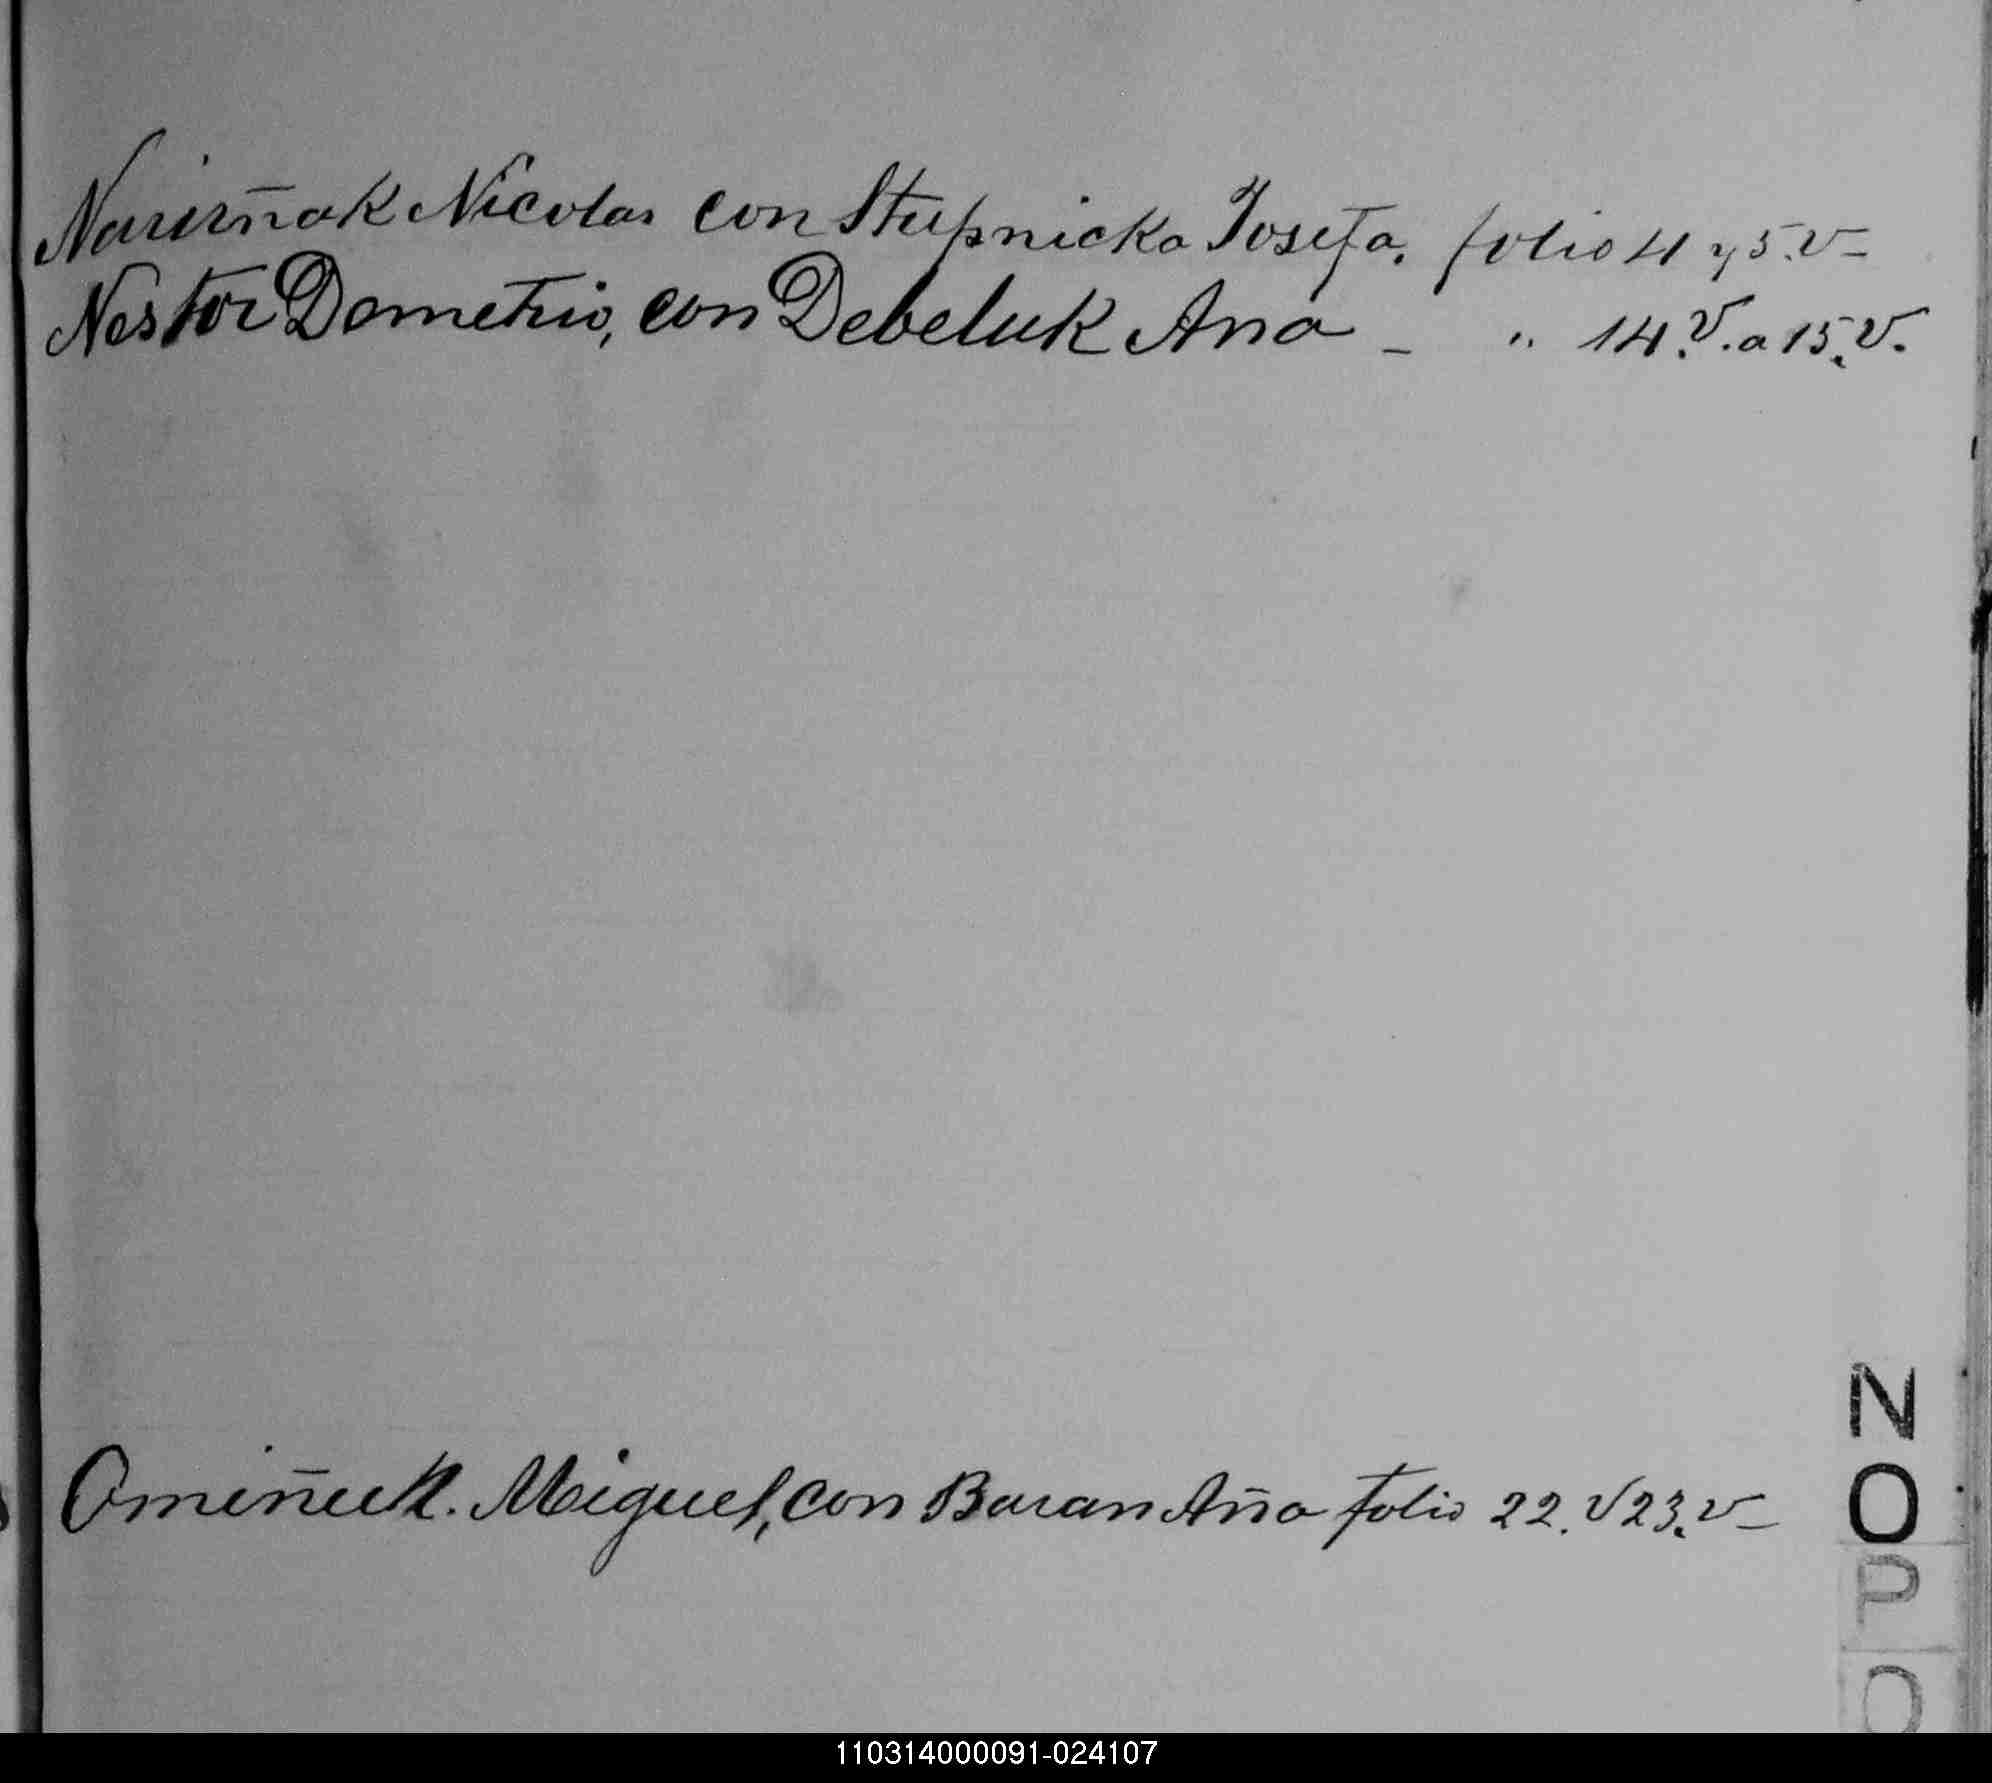 Narirñak Nicolas con Stupnicka Josefa. folio 4 y 5.v-
Nestor Demetrio, con Debeluk Ana - " 14.V. a 15.V.
Omiñuk. Miguel, con Baran Aña folio 22. V 23.v-
N
O
P
Q
110314000091-024107